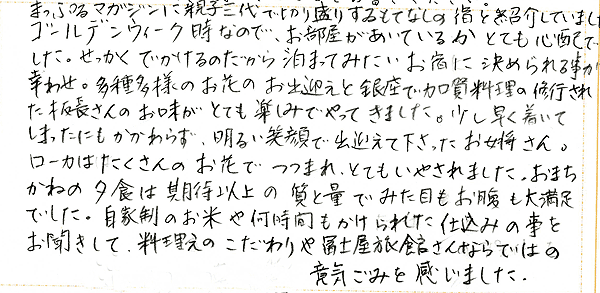 まっぷるマガジンに親子三代で切り盛りするもてなしの宿と紹介していまし
ゴールデンウィーク時なので、お部屋があいているかとても心配で
した。せっかくでかけるのだから泊まってみたいお宿に決められる事が
幸わせ。多種多様のお花のお出迎えと銀座で加賀料理の修行され
た板長さんのお味がとても楽しみでやってきました。少し早く着いて
しまったにもかかわらず、明るい笑顔で出迎えて下さったお女将さん。
ローカはたくさんのお花でつつまれ、とてもいやされました。おまち
かねの夕食は期待以上の質と量でみた目もお腹も大満足
でした。自家制のお米や何時間もかけられた仕込みの事を
お聞きして、料理えのこだわりや冨士屋旅館さんならではの
意気ごみを感じました.